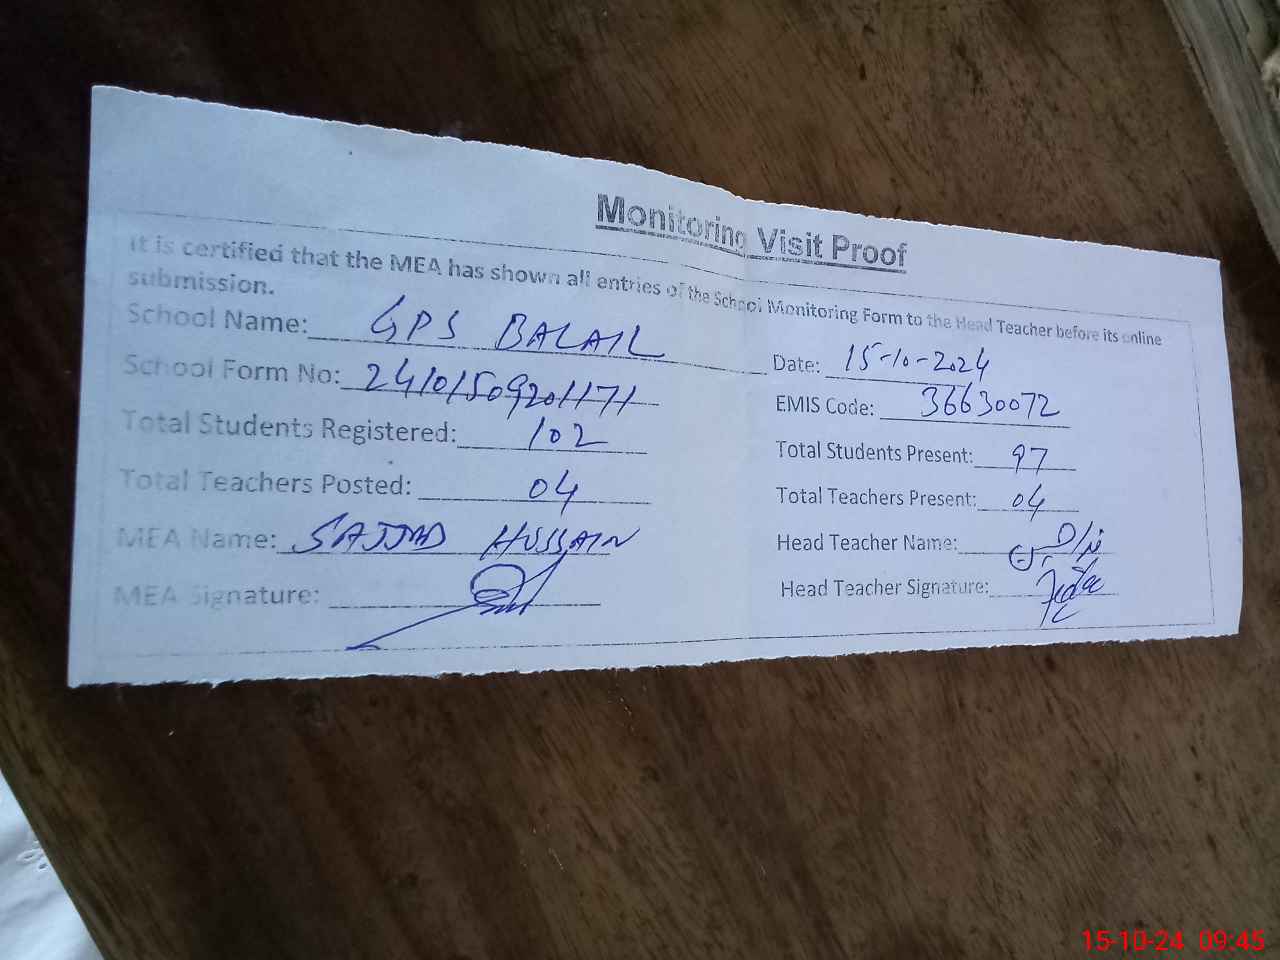 Monitoring Visit Proof
It is certified that the MEA has shown all entries of the School Monitoring Form to the Head Teacher before its online
submission.
School Name: GPS BALAIL
Date: 15-10-2024
School Form No: 24101509201171
EMIS Code: 36630072
Total Students Registered: 102
Total Students Present: 97
Total Teachers Posted: 04
Total Teachers Present: 04
MEA Name: SAJJAD HUSSAIN
Head Teacher Name:
MEA Signature:
Head Teacher Signature:
15-10-24 09:45